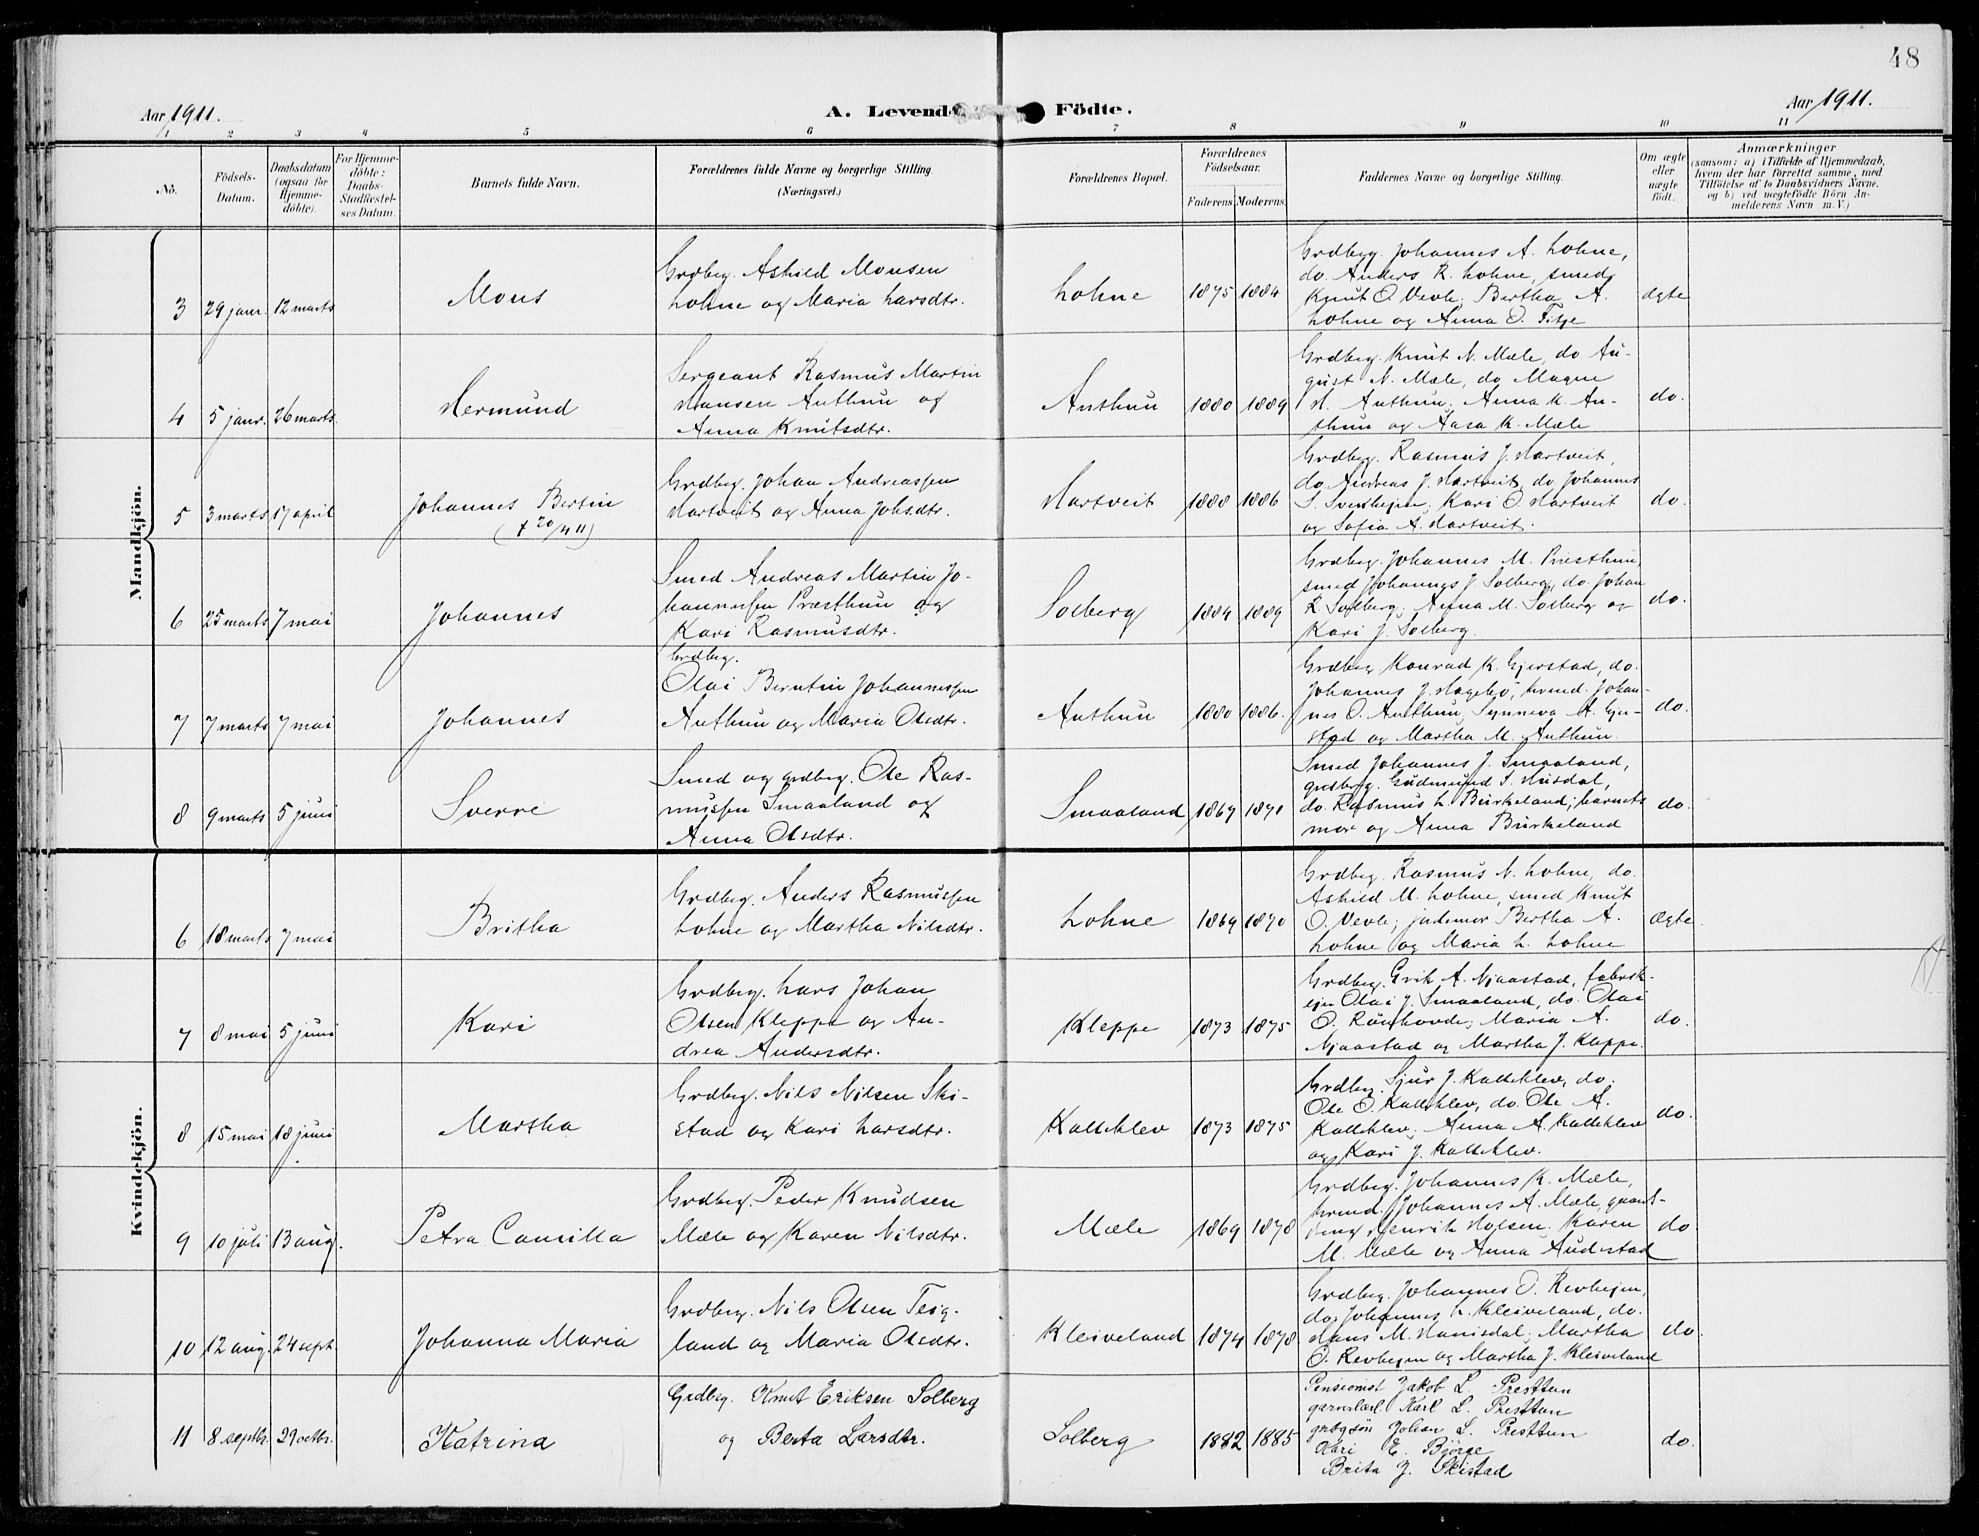 48
Aar 1911.
A. Levende Födte.
Aar 1911.
1 2 3 4 5 6 7 8 9 10 11
No.
Födsels-
Datum.
Daabsdatum
(ogsaa for
Hjemme-
döbte).
For Hjemme-
döbte:
Daabs-
Stadfæstel-
ses Datum.
Barnets fulde Navn.
Forældrenes fulde Navne og borgerlige Stilling
(Næringsvei.)
Forældrenes Bopæl.
Forældrenes
Födselsaar.
Faderens Moderens
Faddernes Navne og borgerlige Stilling.
Om ægte
eller
uægte
födt.
Anmærkninger
(saasom: a) i Tilfælde af Hjemmedaab,
hvem der har forrettet samme, med
Tilföielse af to Daabsvidners Navne,
og b) ved uægtefödte Börn An-
melderens Navn m. V.)
Mandkjön.
3 29 janr. 12 marts
Mons
Grdbrg. Askild Monsen
Lohne og Maria Larsdtr.
Lohne
1875 1884
Grdbrg. Johannes A. Lohne,
do. Anders R. Lohne, smed
Knut O. Vevle, Bertha A.
Lohne og Anna O. Titje
ægte
4 5 janr. 26 marts.
Hermund
Sergeant Rasmus Martin
Hansen Anthun og
Anna Knutsdtr.
Anthun
1880 1889
Grdbrg. Knut N. Mæle, do Au-
gust N. Mæle, do. Magne
H. Anthun, Anna K. An-
thun og Aasa K. Mæle
do.
5 3 marts 17 april
Johannes Bertin
(† 20/4 11)
Grdbrg. Johan Andreassen
Hartveit og Anna Johsdtr.
Hartveit
1880 1886
Grdbrg. Rasmus J. Hartveit,
do. Andreas J. Hartveit, do. Johannes
S. Svenheien, Kari O. Hartveit
og Sofia A. Hartveit.
do.
6 25 marts 7 mai
Johannes
Smed Andreas Martin Jo-
hannessen Præsthun og
Kari Rasmusdtr.
Solberg
1884 1889
Grdbrg. Johannes M. Præsthun,
smed Johannes J. Solberg, do. Johan
R. Solberg, Anna M. Solberg og
Kari J. Solberg.
do.
7 7 marts 7 mai
Johannes
Grdbrg.
Olai Berntin Johannessen
Anthun og Maria Olsdtr.
Anthun
1880 1886.
Grdbrg Konrad K. Gjerstad, do.
Johannes J. Hagebø, hrmd. Johan-
nes O. Anthun, Synneva A. Gjer-
stad og Martha M. Anthun.
do.
8 9 marts 5 juni
Sverre
Smed og grdbrg. Ole Ras-
mussen Smaaland og
Anna Olsdtr.
Smaaland
1867 1871
Smed Johannes J. Smaaland,
grdbrg. Gudmund S. Husdal,
do. Rasmus L. Birkeland, barnets
mor og Anna Birkeland
do.
Kvindekjön.
6 18 marts 7 mai
Britha
Grdbrg. Anders Rasmussen
Lohne og Martha Nilsdtr.
Lohne
1869 1870
Grdbrg. Rasmus N. Lohne, do.
Askild M. Lohne, smed Knut
O. Vevle, jordmor Bertha A.
Lohne og Maria L. Lohne
Ægte
7 8 mai 5 juni
Kari
Grdbrg. Lars Johan
Olsen Kleppe og An-
drea Andersdtr.
Kleppe
1873 1875
Grdbrg. Erik A. Njaastad, fabrik-
ejer Olai J. Smaaland, do. Olai
O. Rönhovde, Maria A.
Njaastad og Martha J. Kleppe.
do.
8 15 mai 18 juni
Martha
Grdbrg. Nils Nilsen Ski-
stad og Kari Larsdtr.
Kalleklev
1873 1875
Grdbrg. Sjur J. Kalleklev, do.
Ole O. Kalleklev, do. Ole A.
Kalleklev, Anna A. Kalleklev
og Kari J. Kalleklev.
do.
9 10 juli 13 aug.
Petra Camilla
Grdbrg. Peder Knudsen
Mæle og Karen Nilsdtr.
Mæle
1869 1878
Grdbrg. Johannes K. Mæle,
hrmd. Johannes A. Mæle,
Henrik Holsen, Karen
M. Mæle og Anna Audestad
do
10 12 aug. 24 sept.
Johanna Maria
Grdbrg. Nils Olsen Teig-
land og Maria Olsdtr.
Kleiveland
1874 1878
Grdbrg. Johannes O. Revheien,
do. Johannes L. Kleiveland, do.
Hans M. Hanisdal, Martha
O. Revheien og Martha J. Kleiveland
do
11 8 septbr. 29 octbr.
Katrina
Grdbrg. Knut Eriksen Solberg
og Berta Larsdtr.
Solberg
1882 1885
Pensionist Jakob L. Presttun
garverlærl. Karl L. Presttun
grbgsön Johan L. Presttun
Kari E. Bjørge
Brita J. Skistad
do.